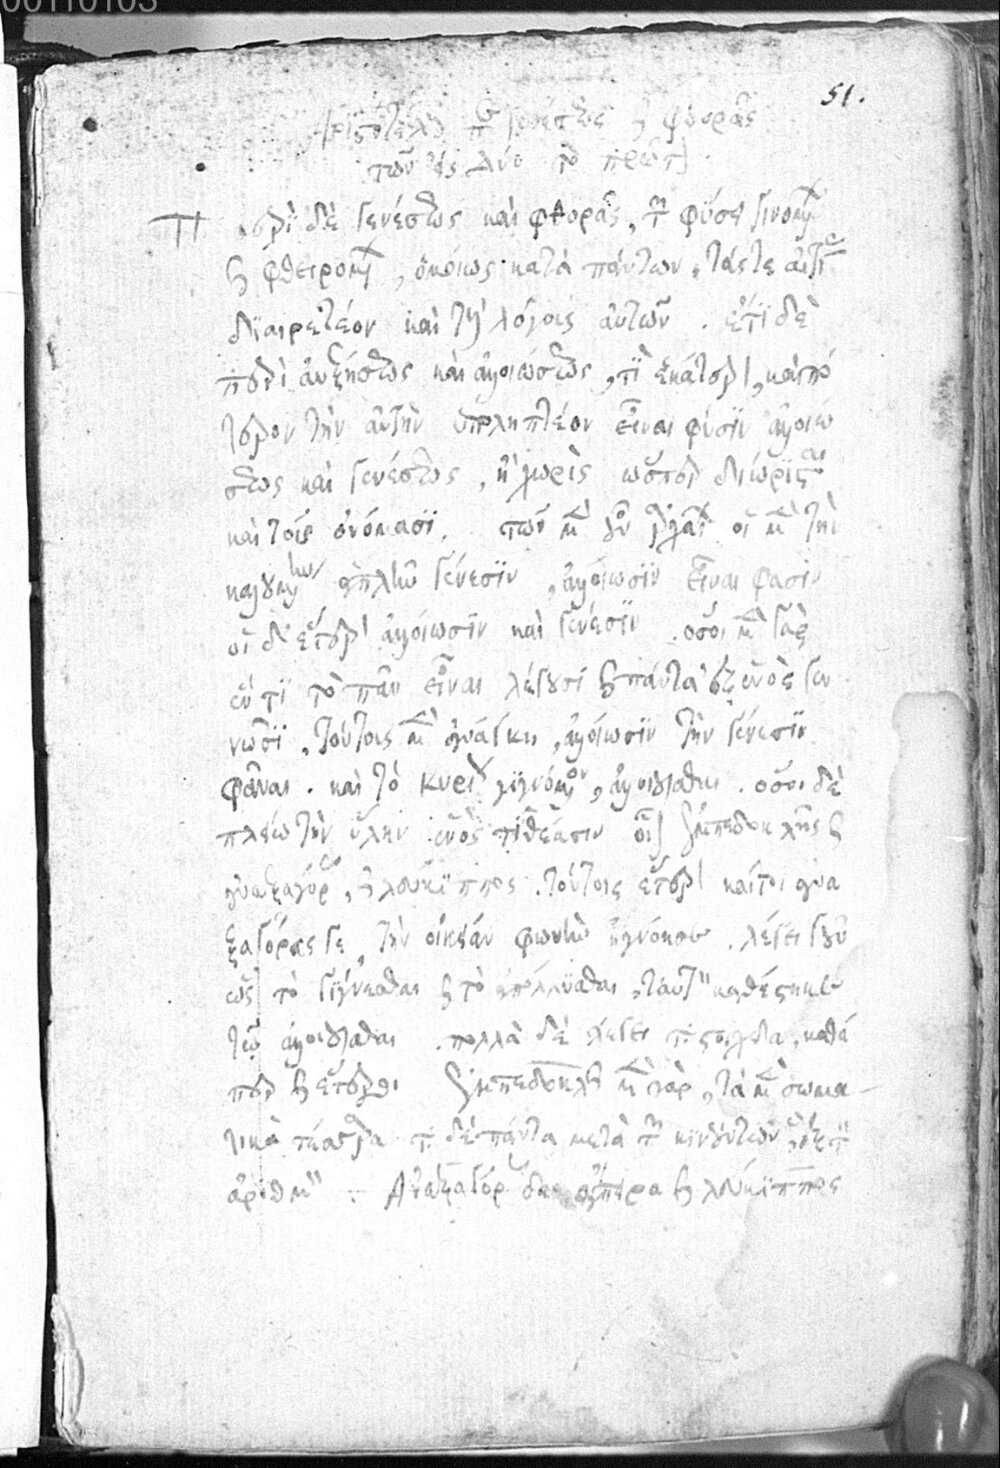 00110103
51.
Ἀριστοτέλους περὶ γενέσεως καὶ φθορᾶς
τῶν εἰς δύο τὸ πρῶτον
Περὶ δὲ γενέσεως καὶ φθορᾶς, τῶν φύσει γινομένων
καὶ φθειρομένων, ὁμοίως κατὰ πάντων, τάς τε αἰτίας
διαιρετέον καὶ τοὺς λόγους αὐτῶν. ἔτι δὲ
περὶ αὐξήσεως καὶ ἀλλοιώσεως, τί ἑκάτερον, καὶ πό
τερον τὴν αὐτὴν ὑποληπτέον εἶναι φύσιν ἀλλοιώ
σεως καὶ γενέσεως, ἢ χωρὶς ὥσπερ διώρισται
καὶ τοῖς ὀνόμασι. τῶν μὲν οὖν ἀρχαίων οἱ μὲν τὴν
καλουμένην ἁπλῶς γένεσιν, ἀλλοίωσιν εἶναι φασὶν
οἱ δ' ἕτερον ἀλλοίωσιν καὶ γένεσιν. ὅσοι μὲν γὰρ
ἕν τι τὸ πᾶν εἶναι λέγουσι καὶ πάντα ἐξ ἑνὸς γεν
νῶσι, τούτοις μὲν ἀνάγκη, ἀλλοίωσιν τὴν γένεσιν
φάναι. καὶ τὸ κυρίως γιγνόμενον, ἀλλοιοῦσθαι. ὅσοι δὲ
πλείω τὴν ὕλην ἑνὸς τιθέασιν οἷον Ἐμπεδοκλῆς καὶ
ἀναξαγόρας, καὶ λεύκιππος. τούτοις ἕτερον καίτοι ἀνα
ξαγόρας γε, τὴν οἰκείαν φωνὴν ἠγνόησεν. λέγει γοῦν
ὡς τὸ γίγνεσθαι καὶ τὸ ἀπόλλυσθαι, ταὐτὸν καθέστηκε
τῷ ἀλλοιοῦσθαι. πολλὰ δὲ λέγει τὰ στοιχεῖα, καθά
περ καὶ ἕτεροι Ἐμπεδοκλῆς μὲν γὰρ, τὰ μὲν σωμα
τικὰ τέσσαρα τὰ δὲ πάντα μετὰ τῶν κινούντων ἓξ τὸν
ἀριθμόν. Ἀναξαγόρας δὲ ἄπειρα καὶ λεύκιππος